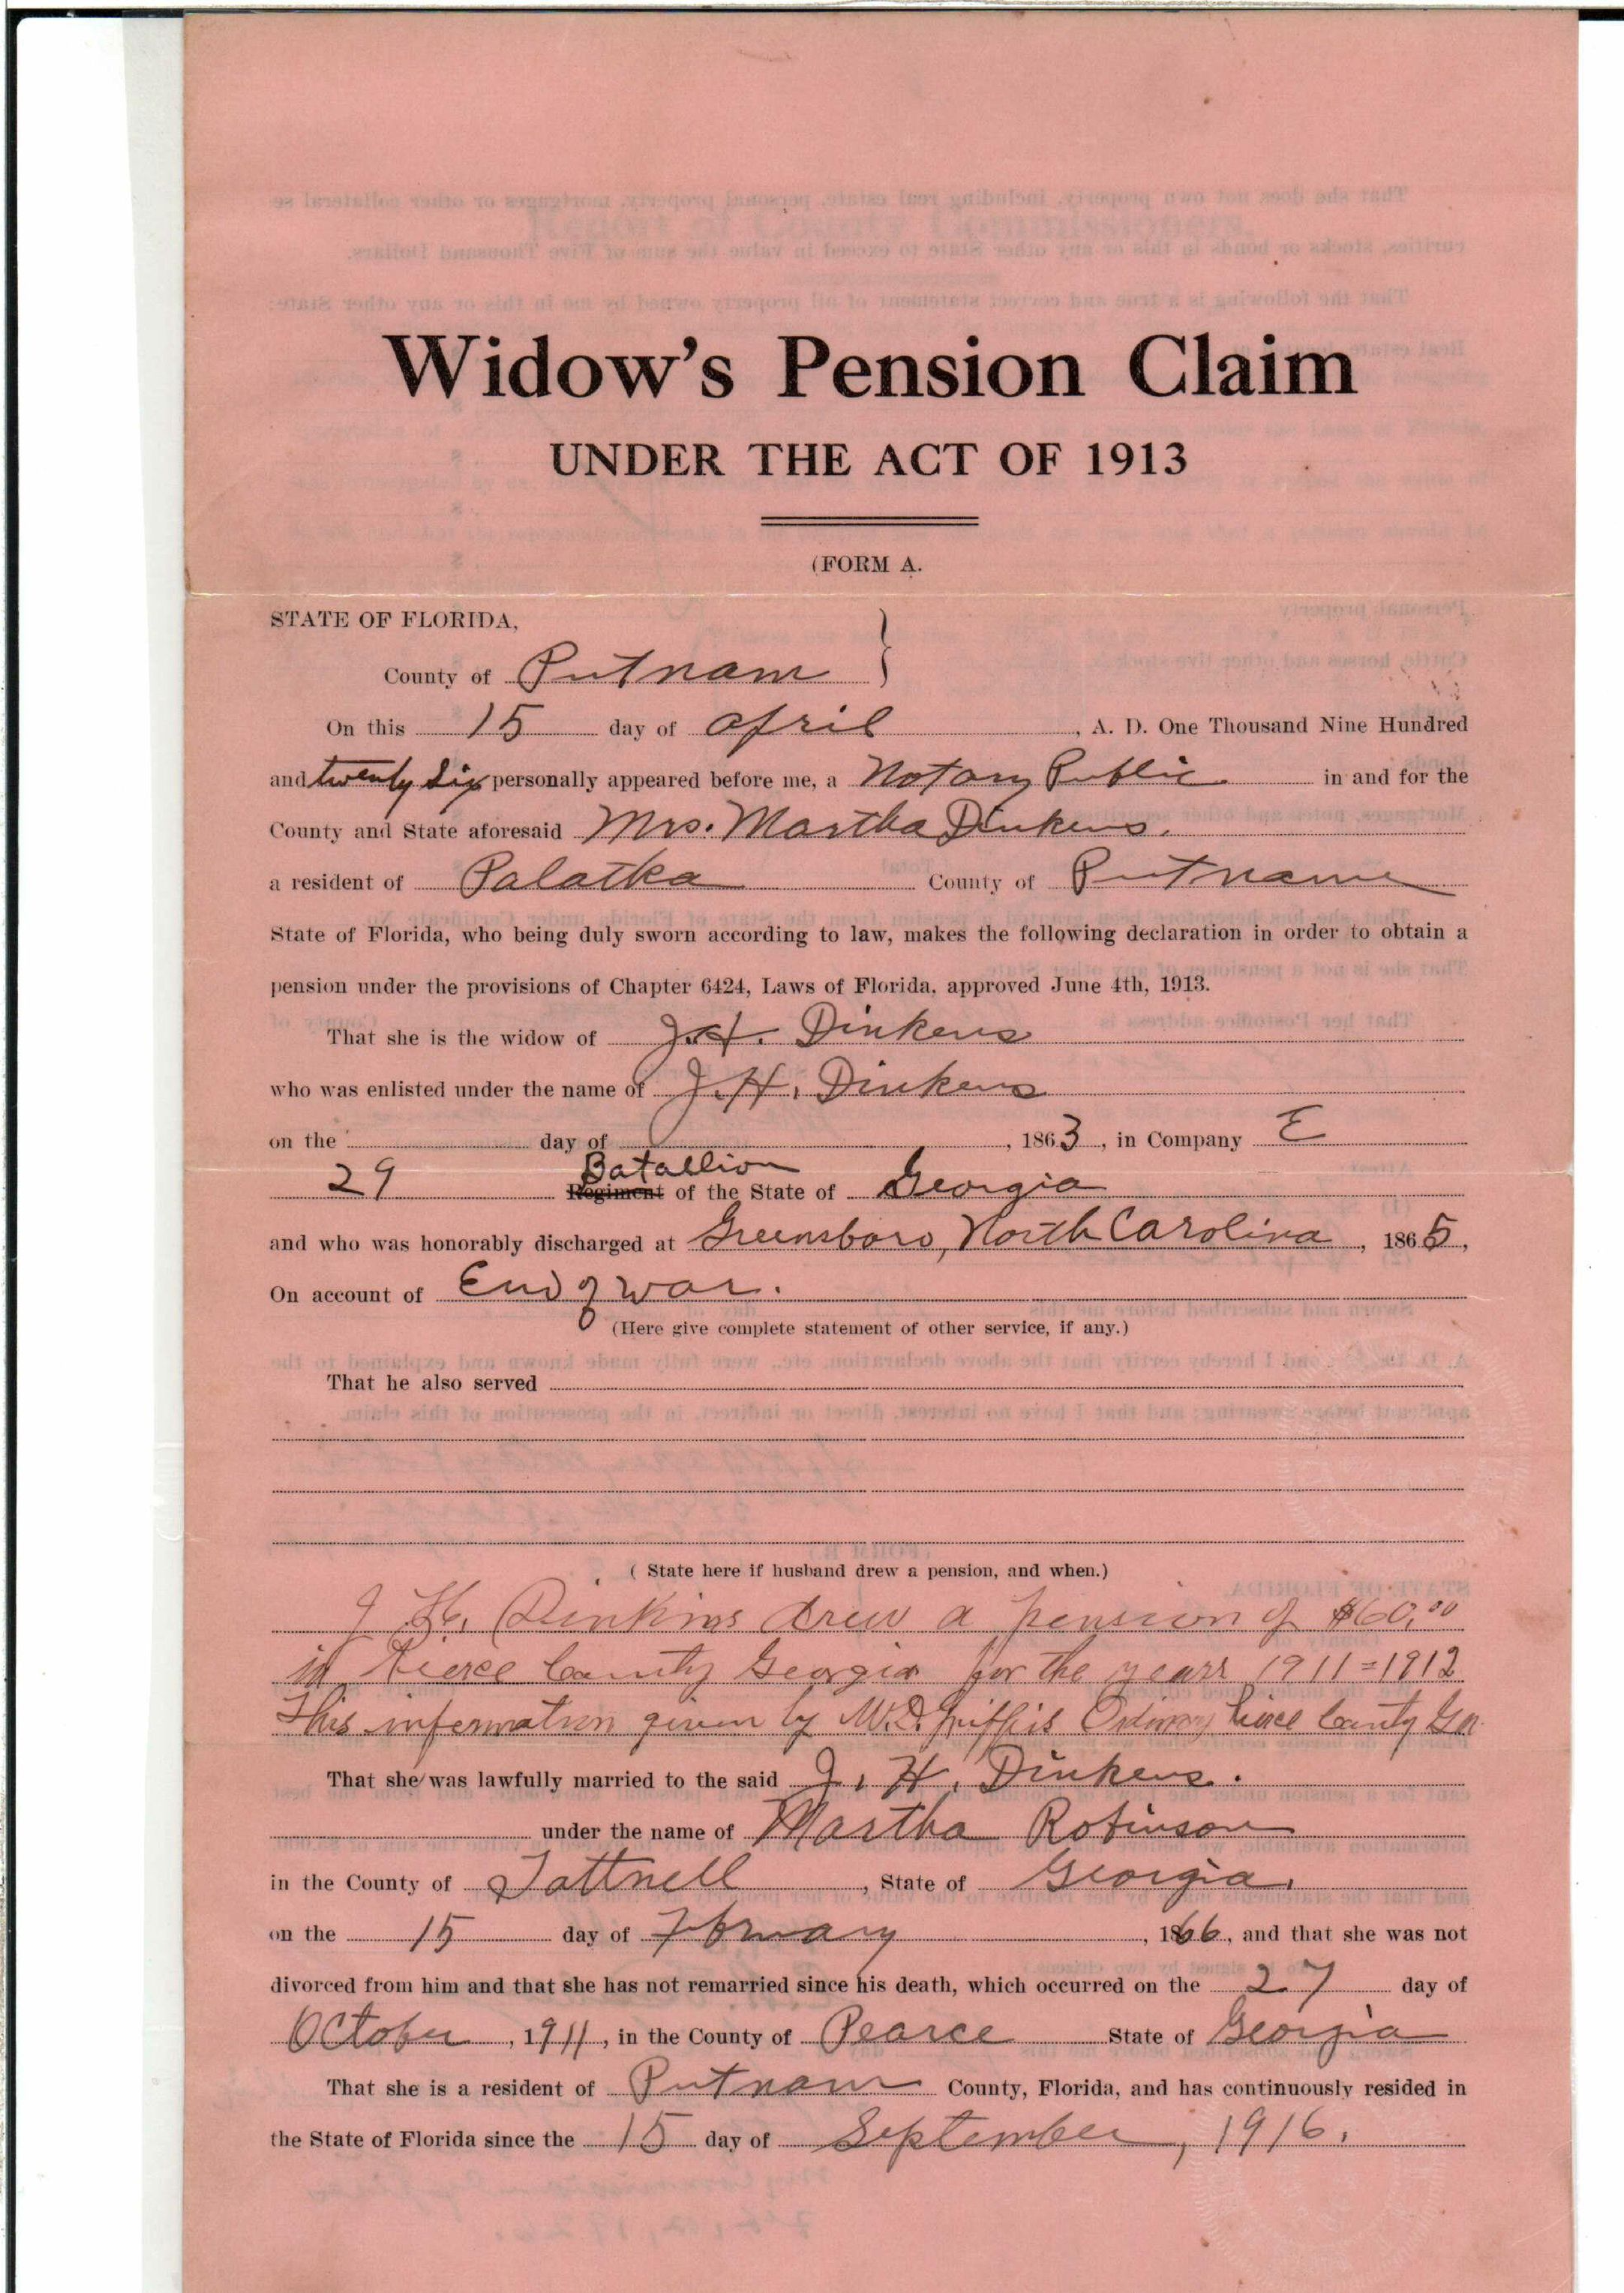 Widow's Pension Claim
UNDER THE ACT OF 1913
(FORM A.
STATE OF FLORIDA,
County of Putnam }
On this 15 day of April , A. D. One Thousand Nine Hundred
and twenty six personally appeared before me, a Notary Public in and for the
County and State aforesaid Mrs. Martha Dinkens.
a resident of Palatka County of Putnam
State of Florida, who being duly sworn according to law, makes the following declaration in order to obtain a
pension under the provisions of Chapter 6424, Laws of Florida, approved June 4th, 1913.
That she is the widow of J.H. Dinkens
who was enlisted under the name of J.H. Dinkens
on the day of , 1863, in Company E
Batallion
29 Regiment of the State of Georgia
and who was honorably discharged at Greensboro, North Carolina, 1865,
On account of End of war.
(Here give complete statement of other service, if any.)
That he also served
( State here if husband drew a pension, and when.)
J. H. Dinkins drew a pension of $60.00
in Pierce County Georgia for the years 1911=1912
This information given by W.D. Griffis Ordinary Pierce County Ga.
That she was lawfully married to the said J. H. Dinkens.
under the name of Martha Robinson
in the County of Tattnell , State of Georgia.
on the 15 day of Febrruary , 1866, and that she was not
divorced from him and that she has not remarried since his death, which occurred on the 27 day of
October, 1911, in the County of Pearce State of Georgia
That she is a resident of Putnam County, Florida, and has continuously resided in
the State of Florida since the 15 day of September, 1916.